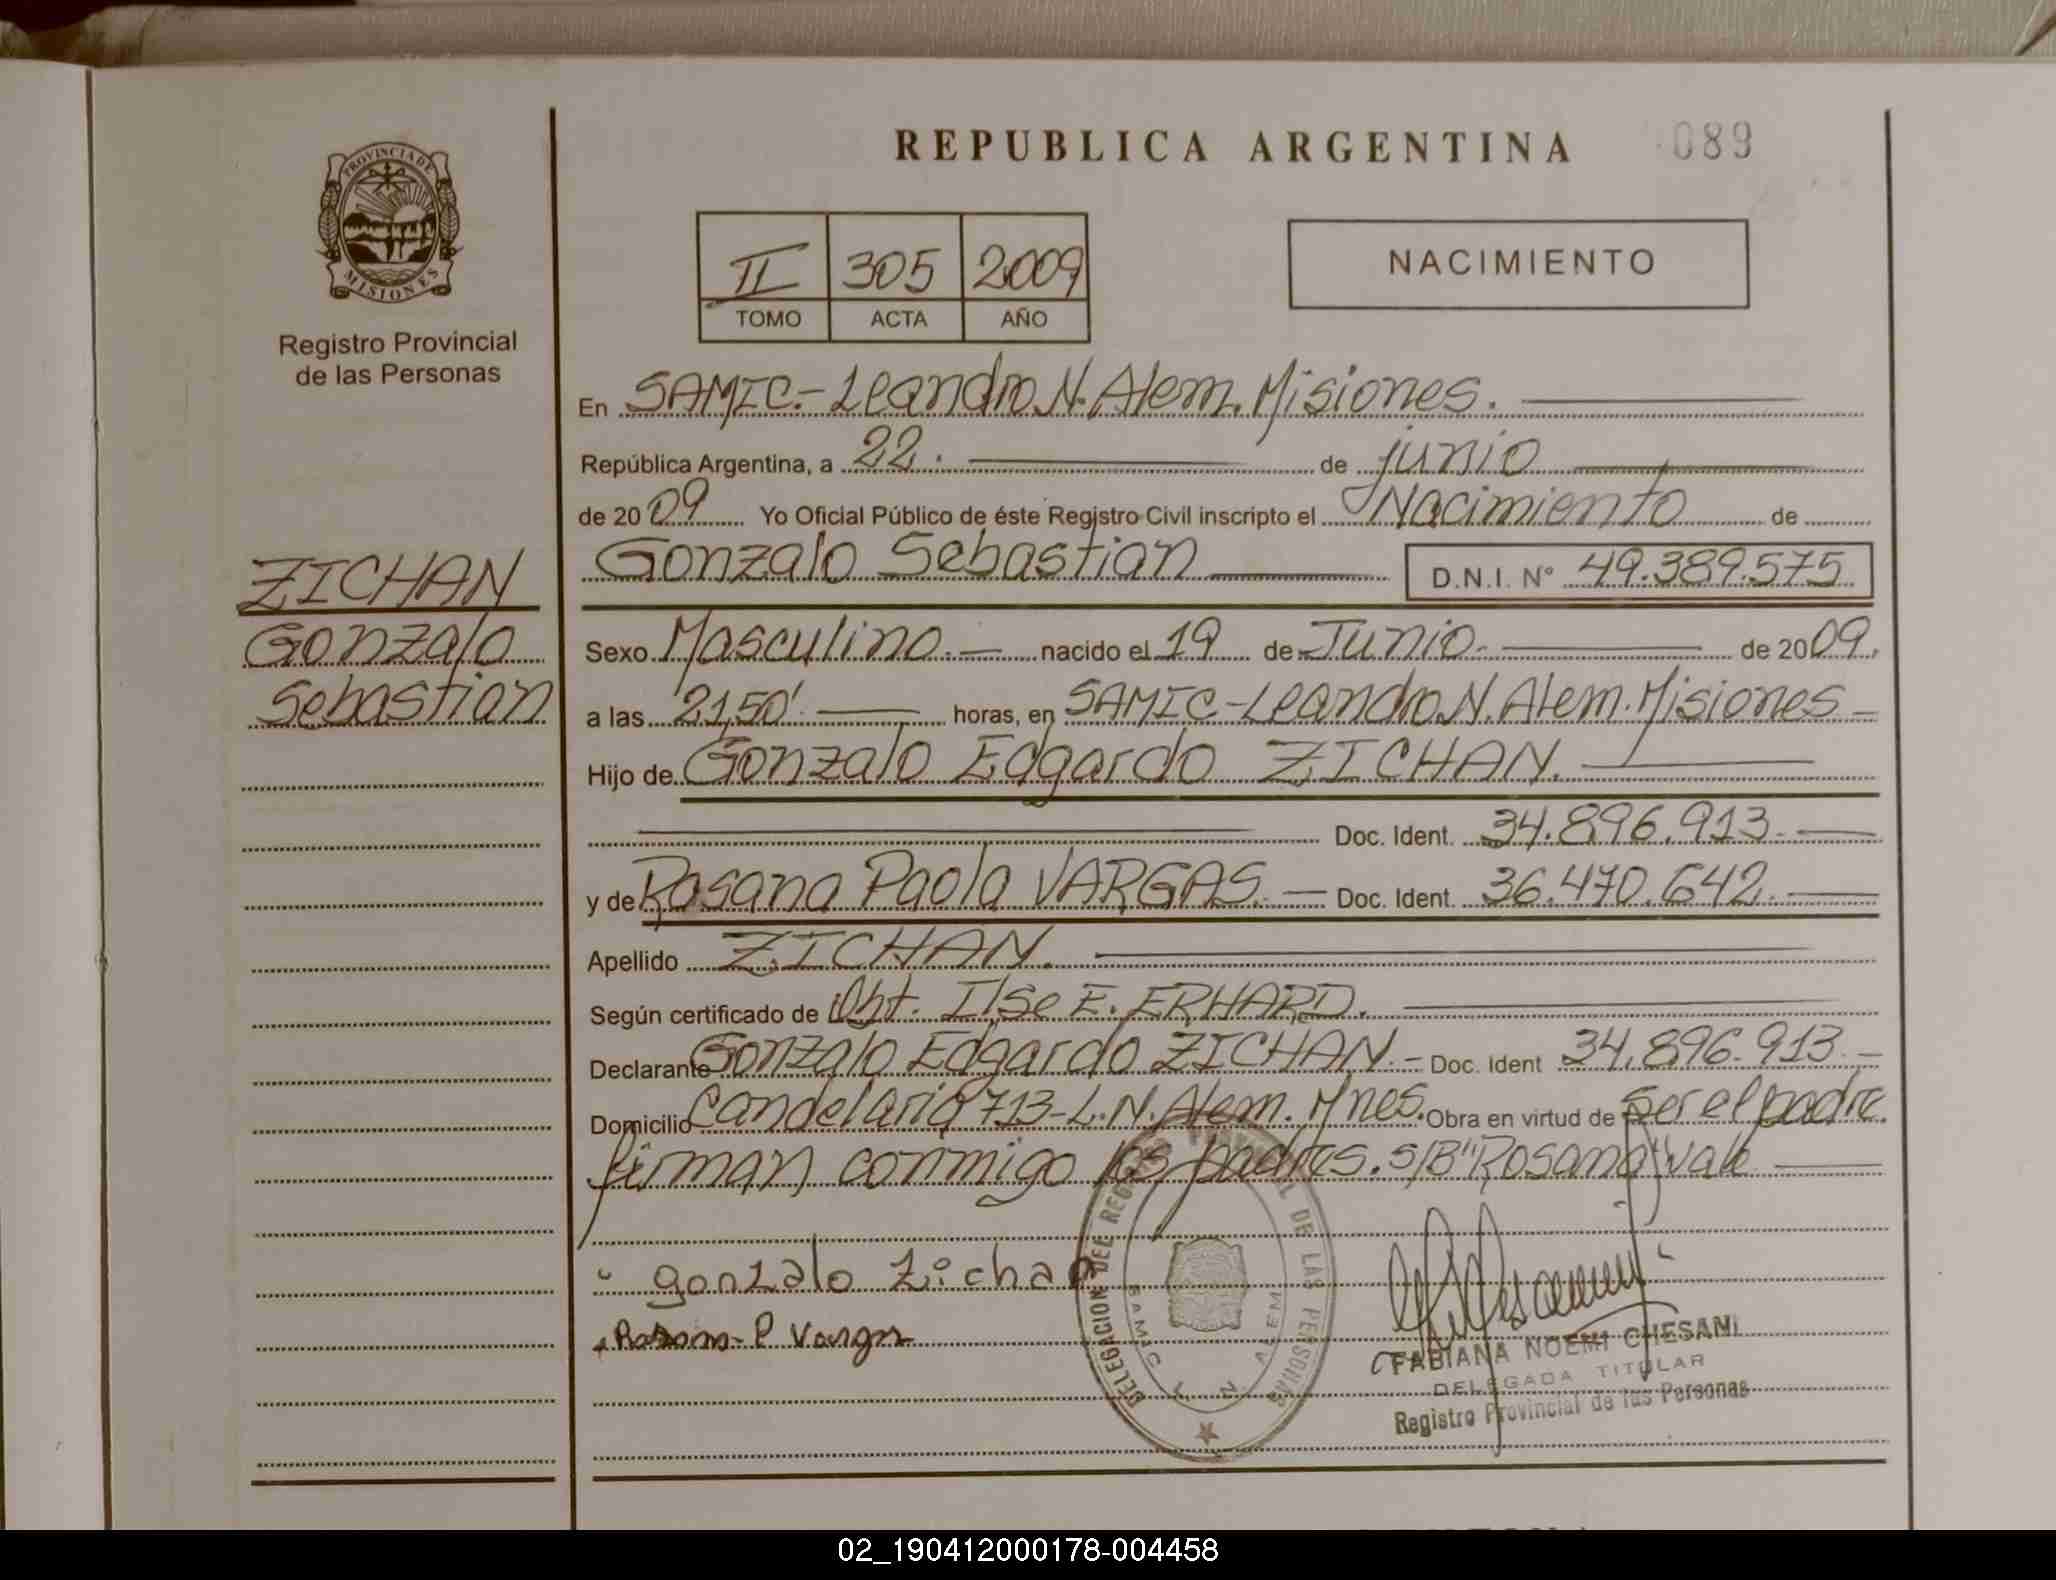 REPUBLICA ARGENTINA
089
PROVINCIA DE
MISIONES
Registro Provincial
de las Personas
II 305 2009
TOMO ACTA AÑO
NACIMIENTO
En SAMIC.-Leandro N. Alem. Misiones.
República Argentina, a 22. de junio
de 2009 Yo Oficial Público de éste Registro Civil inscripto el Nacimiento de
Gonzalo Sebastian D.N.I. Nº 49.389.575
ZICHAN
Gonzalo
Sebastian
Sexo Masculino.- nacido el 19 de Junio.- de 2009.
a las 21,50'. horas, en SAMIC-Leandro N. Alem. Misiones
Hijo de Gonzalo Edgardo ZICHAN.
Doc. Ident. 34.896.913.
y de Rosana Paola VARGAS. Doc. Ident. 36.470.642.
Apellido ZICHAN.
Según certificado de Obt. Ilse E. ERHARD.
Declarante Gonzalo Edgardo ZICHAN.- Doc. Ident 34.896.913.-
Domicilio Candelaria 713-L.N. Alem. Mnes. Obra en virtud de ser el padre.
firman conmigo los padres. S/B "Rosana" vale
gonzalo Zichan
Rosana P Vargas
DELEGACION DEL REGISTRO PROVINCIAL DE LAS PERSONAS
SAMIC L. N. ALEM
FABIANA NOEMI CHESANI
DELEGADA TITULAR
Registro Provincial de las Personas
02_190412000178-004458